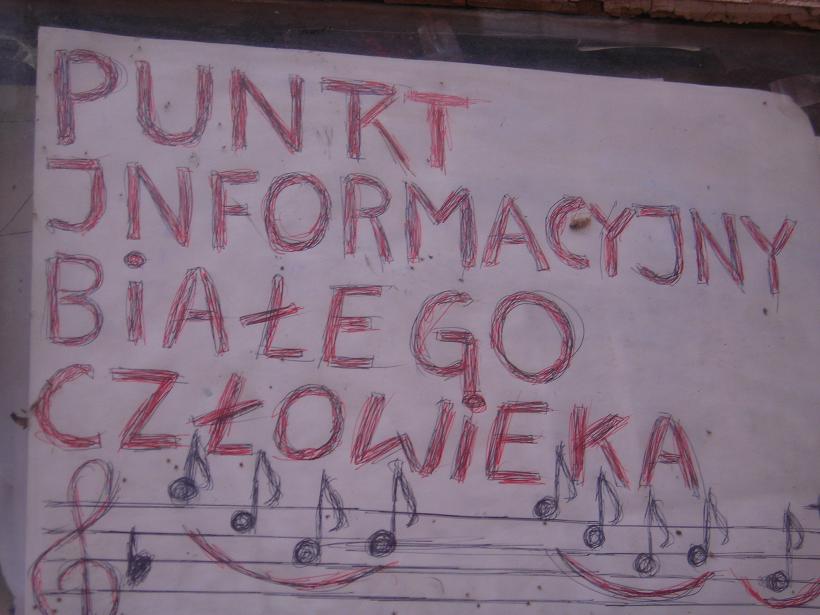 PUNKT
JNFORMACYJNY
BiAŁEGO
CZŁOWiEKA